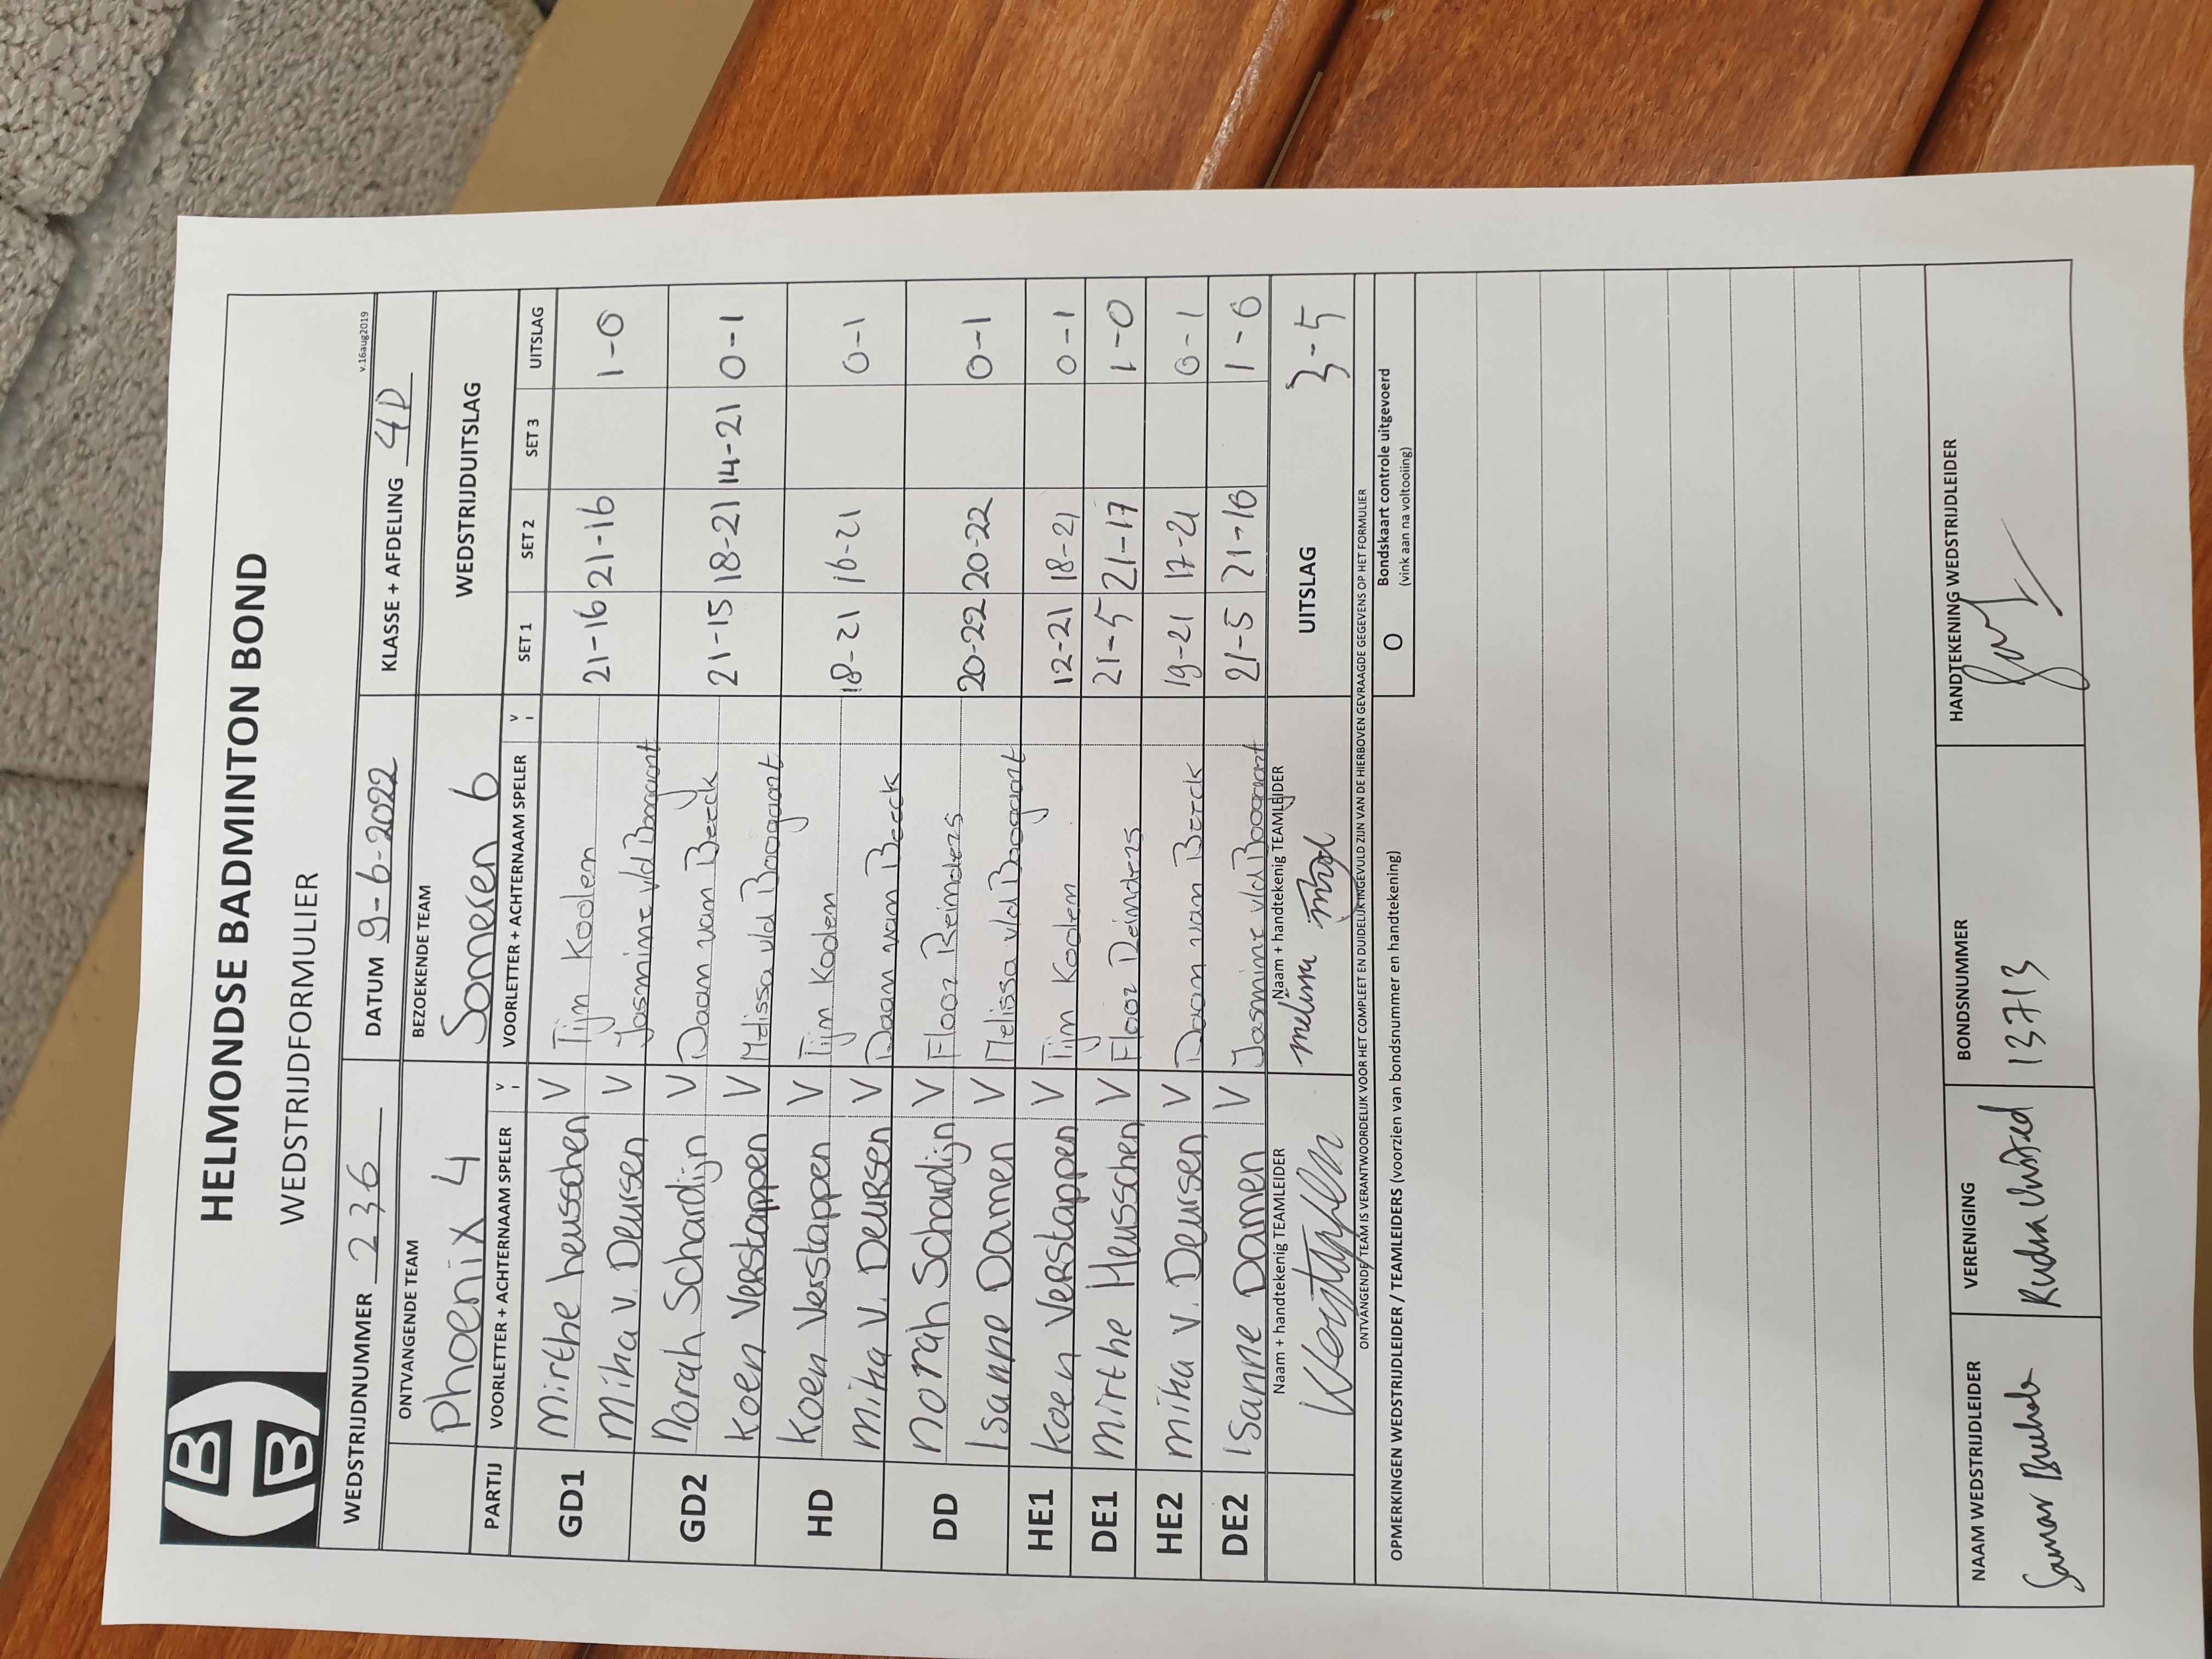 HELMONDSE BADMINTON BOND
WEDSTRIJDFORMULIER
v.16aug2019
WEDSTRIJDNUMMER 236 DATUM 9-6-2022 KLASSE + AFDELING 4D
ONTVANGENDE TEAM BEZOEKENDE TEAM WEDSTRIJDUITSLAG
Phoenix 4 Someren 6
PARTIJ VOORLETTER + ACHTERNAAM SPELER V I VOORLETTER + ACHTERNAAM SPELER V I SET 1 SET 2 SET 3 UITSLAG
GD1 Mirthe heusschen V Tijn Koolen 21-16 21-16 1-0
Mika v. Deursen V Jasmine v/d Boogaart
GD2 Norah Schardijn V Daan van Beeck 21-15 18-21 14-21 0-1
Koen Verstappen V Melissa v/d Boogaart
HD Koen Verstappen V Tijn Koolen 18-21 16-21 0-1
Mika v. Deursen V Daan van Beeck
DD Norah Schardijn V Floor Reinders 20-22 20-22 0-1
Isanne Damen V Melissa v/d Boogaart
HE1 Koen Verstappen V Tijn Koolen 12-21 18-21 0-1
DE1 Mirthe Heusschen V Floor Reinders 21-5 21-17 1-0
HE2 Mika v. Deursen V Daan van Beeck 19-21 17-21 0-1
DE2 Isanne Damen V Jasmine v/d Boogaart 21-5 21-10 1-0
Naam + handtekenig TEAMLEIDER Naam + handtekenig TEAMLEIDER UITSLAG 3-5
ONTVANGENDE TEAM IS VERANTWOORDELIJK VOOR HET COMPLEET EN DUIDELIJK INGEVULD ZIJN VAN DE HIERBOVEN GEVRAAGDE GEGEVENS OP HET FORMULIER
OPMERKINGEN WEDSTRIJDLEIDER / TEAMLEIDERS (voorzien van bondsnummer en handtekening) O Bondskaart controle uitgevoerd
(vink aan na voltooiing)
NAAM WEDSTRIJDLEIDER VERENIGING BONDSNUMMER HANDTEKENING WEDSTRIJDLEIDER
13713